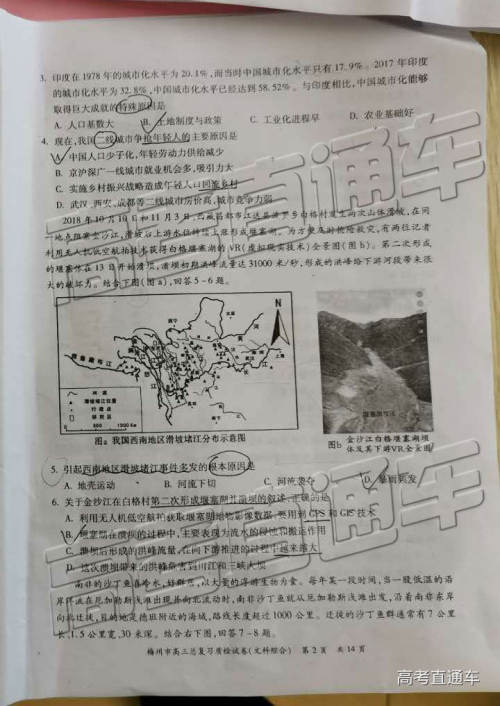 3. 印度在 1978 年的城市化水平为 20.1%，而当时中国城市化水平只有 17.9%。2017 年印度
的城市化水平为 32.8%，中国城市化水平已经达到 58.52%。与印度相比，中国城市化能够
取得巨大成就的特殊原因是
A. 人口基数大 B. 土地制度与政策 C. 工业化进程早 D. 农业基础好
4. 现在，我国二线城市争抢年轻人的主要原因是
A. 中国人口少子化，年轻劳动力供给减少
B. 京沪深广一线城市就业机会多，吸引力大
C. 实施乡村振兴战略造成年轻人口回流乡村
D. 武汉、西安、成都等二线城市房价高，城市竞争弱
2018 年 10 月 10 日和 11 月 3 日，西藏昌都市江达县波罗乡白格村发生两次山体滑坡，在同
一地点阻塞金沙江，滑坡后上游水位持续上涨形成堰塞湖。为方便及时抢险救灾，有两位记者
利用无人机低空航拍技术获得白格堰塞湖的 VR(虚拟现实技术)全景图(图 b)。第二次形成
的堰塞体在 13 日开始溃坝，溃坝初期洪峰流量达 31000 米/秒，形成的洪峰给下游河段带来很
大的破坏力。结合下图(图 a)，回答 5－6 题。
N
河流
滑坡堵江位置
行政点
研究区
0 500 1000 Km
雅鲁藏布江
图a 我国西南地区滑坡堵江分布示意图
图b 金沙江白格堰塞湖坝
体及其下游VR全景图
5. 引起西南地区滑坡堵江事件多发的根本原因是
A. 地壳运动 B. 河流下切 C. 河流袭夺 D. 暴雨频发
6. 关于金沙江在白格村第二次形成堰塞湖并溃坝的叙述，正确的是
A. 利用无人机低空航拍获取堰塞湖地物影像数据，要用到 GPS 和 GIS 技术
B. 堰塞湖在溃坝的过程中，主要表现为流水的侵蚀和搬运作用
C. 溃坝后形成的洪峰流量，在向下游推进的过程中越来越大
D. 这次溃坝带来的洪峰危害到川江和三峡大坝
南非的沙丁鱼喜冷水，好群居，以大量的浮游生物为食。每年某一段时间，当一股低温的沿
岸洋流在厄加勒斯浅滩出现并向北流动时，南非沙丁鱼就从厄加勒斯浅滩出发，沿着南非东岸
向北迁徙，目的地是德班附近的海域，路线长度超过 1000 公里。迁徙的沙丁鱼群通常有 7 公里
长，1.5 公里宽，30 米深。结合右下图，回答 7－8 题。
梅州市高三总复习质检试卷(文科综合) 第 2 页 共 14 页
高考直通车
高考直通车
高考直通车